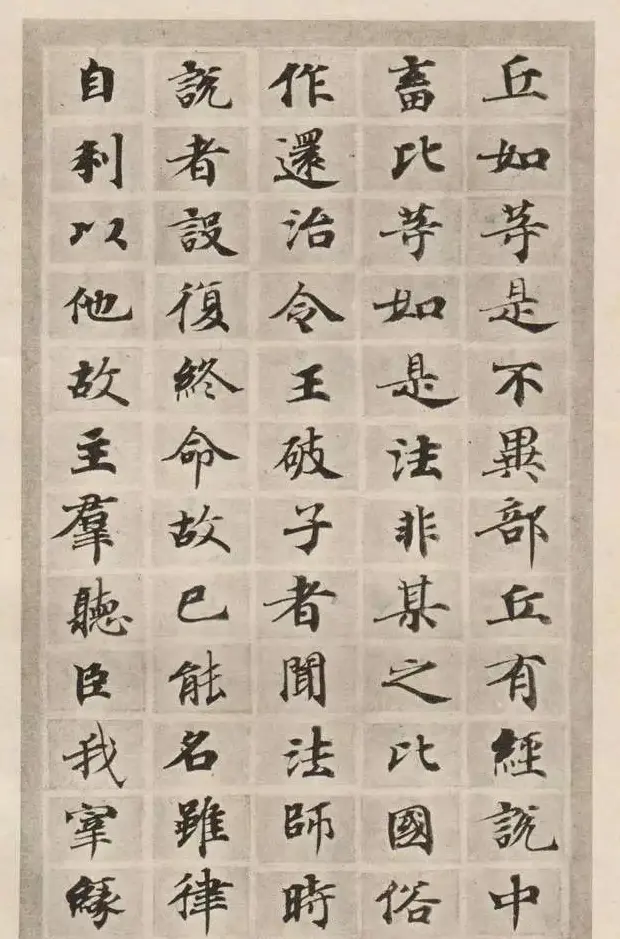 丘如等是不異部丘有經說中
畜比等如是法非某之比國俗
作還治令王破子者聞法師時
說者設復終命故已能名雖律
自利以他故主羣聽臣我宰緣